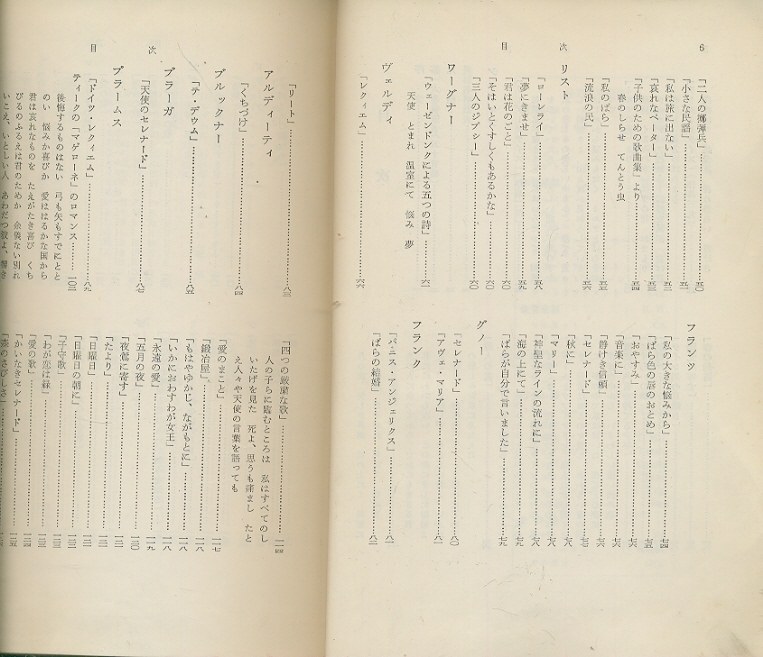 6
目 次
「二人の擲弾兵」……五〇
「小さな民謡」……五一
「私は旅に出ない」……五二
「哀れなペーター」……五三
「子供のための歌曲集」より……五四
春のしらせ てんとう虫
「私のばら」……五六
「流浪の民」……五六
リスト
「ローレライ」……五八
「夢にきませ」……五九
「君は花のごと」……六〇
「そはいとくすしくもあるかな」……六〇
「三人のジプシー」……六〇
ワーグナー
「ウェーゼンドンクによる五つの詩」……六二
天使 とまれ 温室にて 悩み 夢
ヴェルディ
「レクィエム」……六六
フランツ
「私の大きな悩みから」……七四
「ばら色の唇のおとめ」……七五
「おやすみ」……七六
「音楽に」……七六
「静けき信頼」……七六
「セレナード」……七七
「秋に」……七八
「マリー」……七八
「神聖なラインの流れに」……七八
「海の上にて」……七九
「ばらが自分で言いました」……七九
グノー
「セレナード」……八〇
「アヴェ・マリア」……八一
フランク
「パニス・アンジェリクス」……八一
「ばらの結婚」……八二
目 次
「リート」……八三
アルディーティ
「くちづけ」……八四
ブルックナー
「テ・デウム」……八五
ブラーガ
「天使のセレナード」……八七
ブラームス
「ドイツ・レクィエム」……八九
ティークの「マゲローネ」のロマンス……一〇三
後悔するものはない 弓も矢もすでにとと
めい 悩みか喜びか 愛ははるかな国から
君は哀れなものを たえがたき喜び くち
びるのふるえは君のためか 余儀ない別れ
いこえ、いとしい人 あわだつ波よ、響き
「四つの厳粛な歌」……一一四
人の子らに臨むところは 私はすべてのし
いたげを見た 死よ、思うも痛まし たと
え人々や天使の言葉を語っても
「愛のまこと」……一一七
「鍛冶屋」……一一八
「もはやゆかじ、ながもとに」……一一八
「いかにおわすわが女王」……一一八
「永遠の愛」……一一九
「五月の夜」……一二〇
「夜鶯に寄す」……一二一
「たより」……一二二
「日曜日」……一二二
「日曜日の朝に」……一二二
「子守歌」……一二三
「わが恋は緑」……一二三
「愛の歌」……一二四
「かいなきセレナード」……一二五
「森のさびしさ」